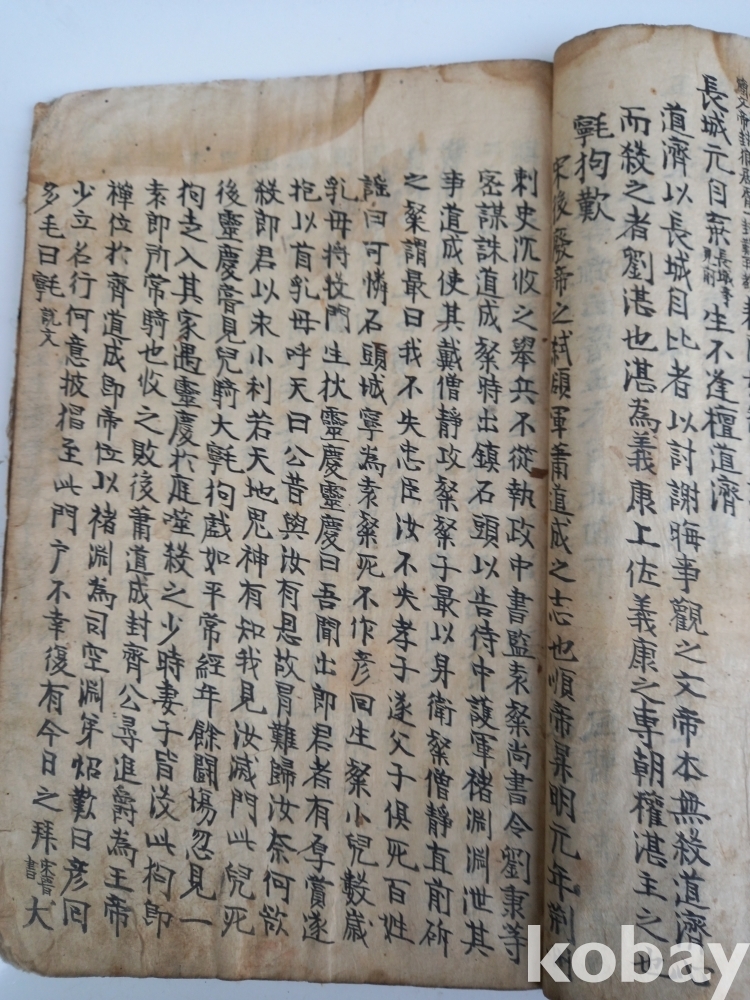 長城元自棄長城事見前生不逢檀道濟
道濟以長城自比者以討謝晦事觀之文帝本無殺道濟
而殺之者劉湛也湛為義康上佐義康之專朝權湛主之也
㲰狗歎
宋後廢帝之弑領軍蕭道成之志也順帝昇明元年荊州
刺史沉攸之舉兵不從執政中書監袁粲尚書令劉秉等
密謀誅道成粲時出鎮石頭以告侍中護軍褚淵淵泄其
事道成使其戴僧靜攻粲粲子最以身衛粲僧靜直前斫
之粲謂最曰我不失忠臣汝不失孝子遂父子俱死百姓
謠曰可憐石頭城寧為袁粲死不作彦回生粲小兒數歲
乳母將投門生狄靈慶靈慶曰吾聞出郎君者有厚賞遂
抱以首乳母呼天曰公昔與汝有恩故冒難歸汝奈何欲
殺郎君以求小利若天地鬼神有知我見汝滅門此兒死
後靈慶嘗見兒騎大㲰狗戲如平常經年餘鬪場忽見一
狗走入其家遇靈慶於庭噬殺之少時妻子皆没此狗即
袁郎所常騎也攸之敗後蕭道成封齊公尋進爵為王帝
禪位於齊道成即帝位以褚淵為司空淵弟炤歎曰彦回
少立名行何意披猖至此門户不幸復有今日之拜宋齊書大
多毛曰㲰說文
kobay